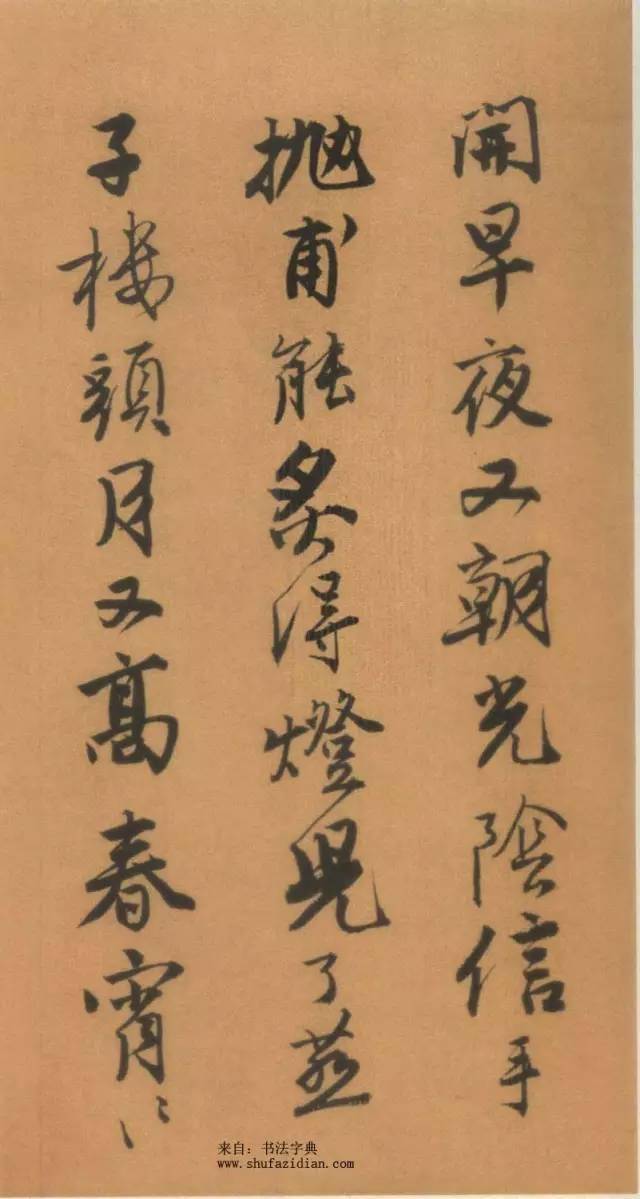 開早夜又朝光陰信手
抛甫能炙得燈兒了燕
子樓頭月又高春宵〻
来自：书法字典
www.shufazidian.com